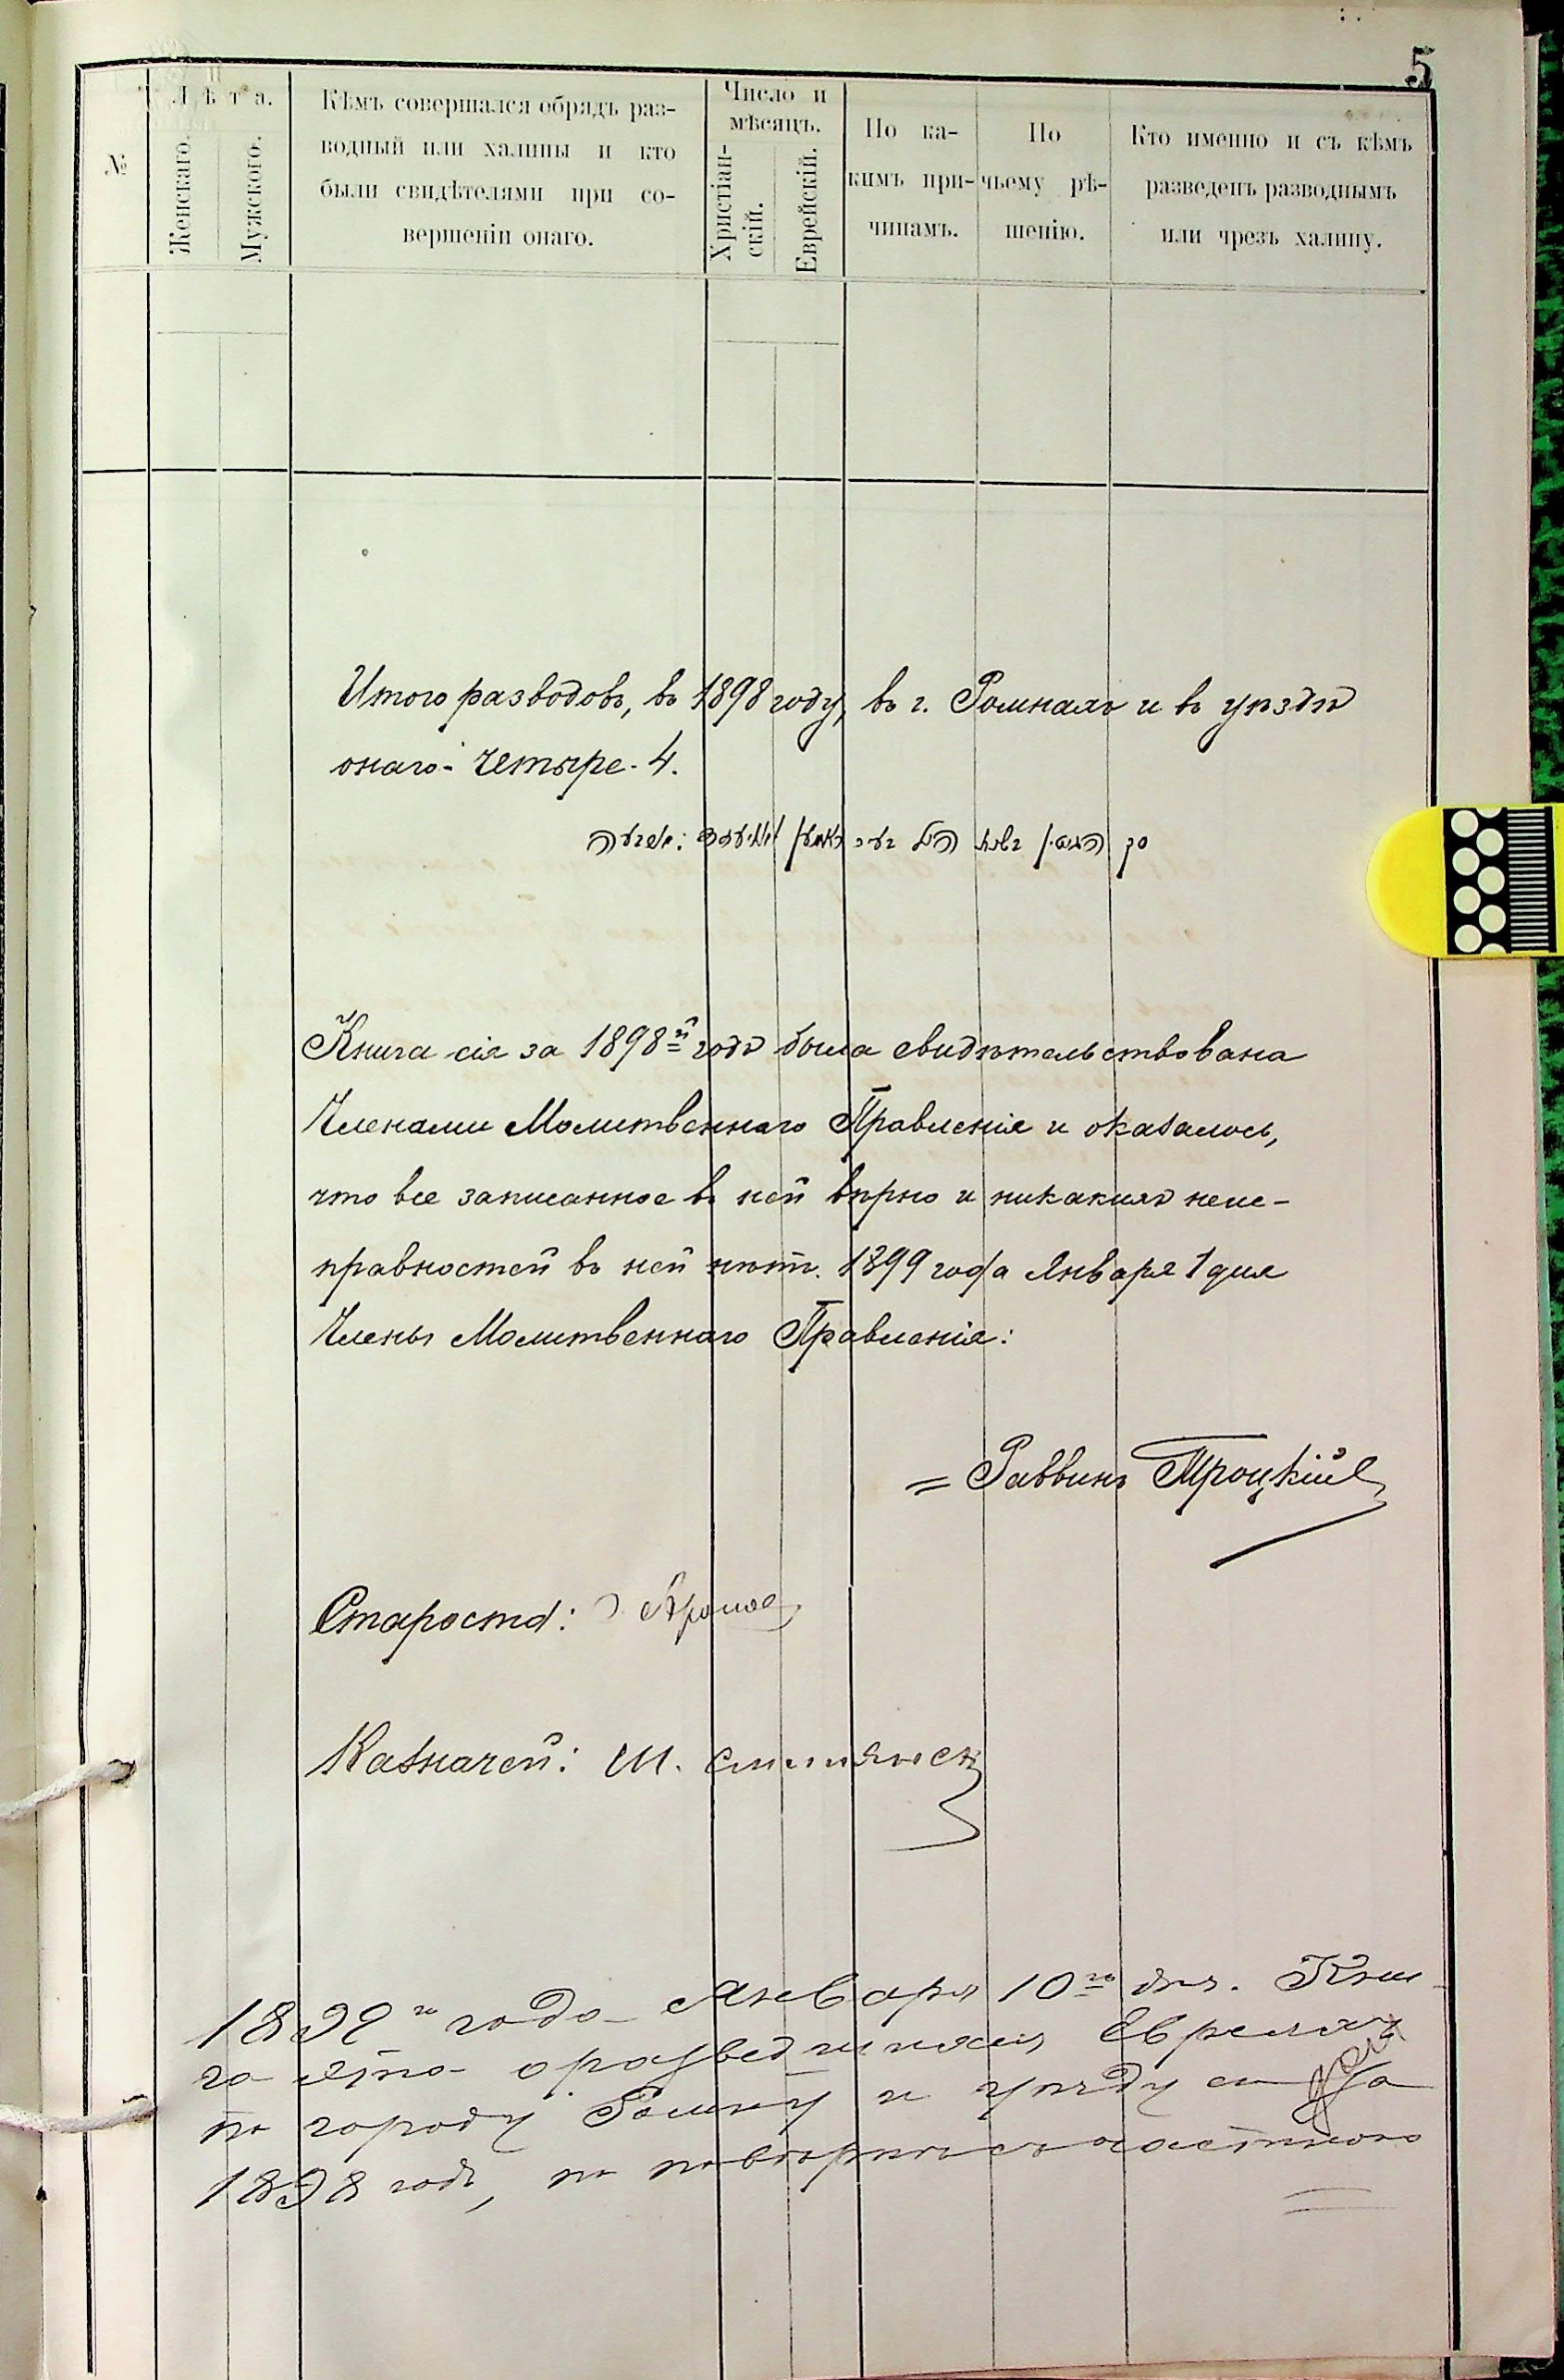 5
№
Лѣта.
Женскаго.
Мужского.
Кѣмъ совершался обрядъ раз-
водный или халицы и кто
были свидѣтелями при со-
вершеніи онаго.
Число и
мѣсяцъ.
Христіан-
скій.
Еврейскій.
По ка-
кимъ при-
чинамъ.
По
чьему рѣ-
шенію.
Кто именно и съ кѣмъ
разведенъ разводнымъ
или чрезъ халицу.
Итого разводовъ, въ 1898 году, въ г. Ромнахъ и въ уѣздѣ
онаго - четыре - 4.
סך
Книга сія за 1898й годъ была свидѣтельствована
Членами Молитвеннаго Правленія и оказалось,
что все записанное въ ней вѣрно и никакихъ неис-
правностей въ ней нѣтъ. 1899 года Января 1 дня
Члены Молитвеннаго Правленія:
= Раввинъ Троцкій
Староста:
Казначей: Ш.
1899 года Января 10го дня. Кни-
га эта о разведшихся Евреяхъ
по городу Ромну и уѣзду за
1898 годъ,